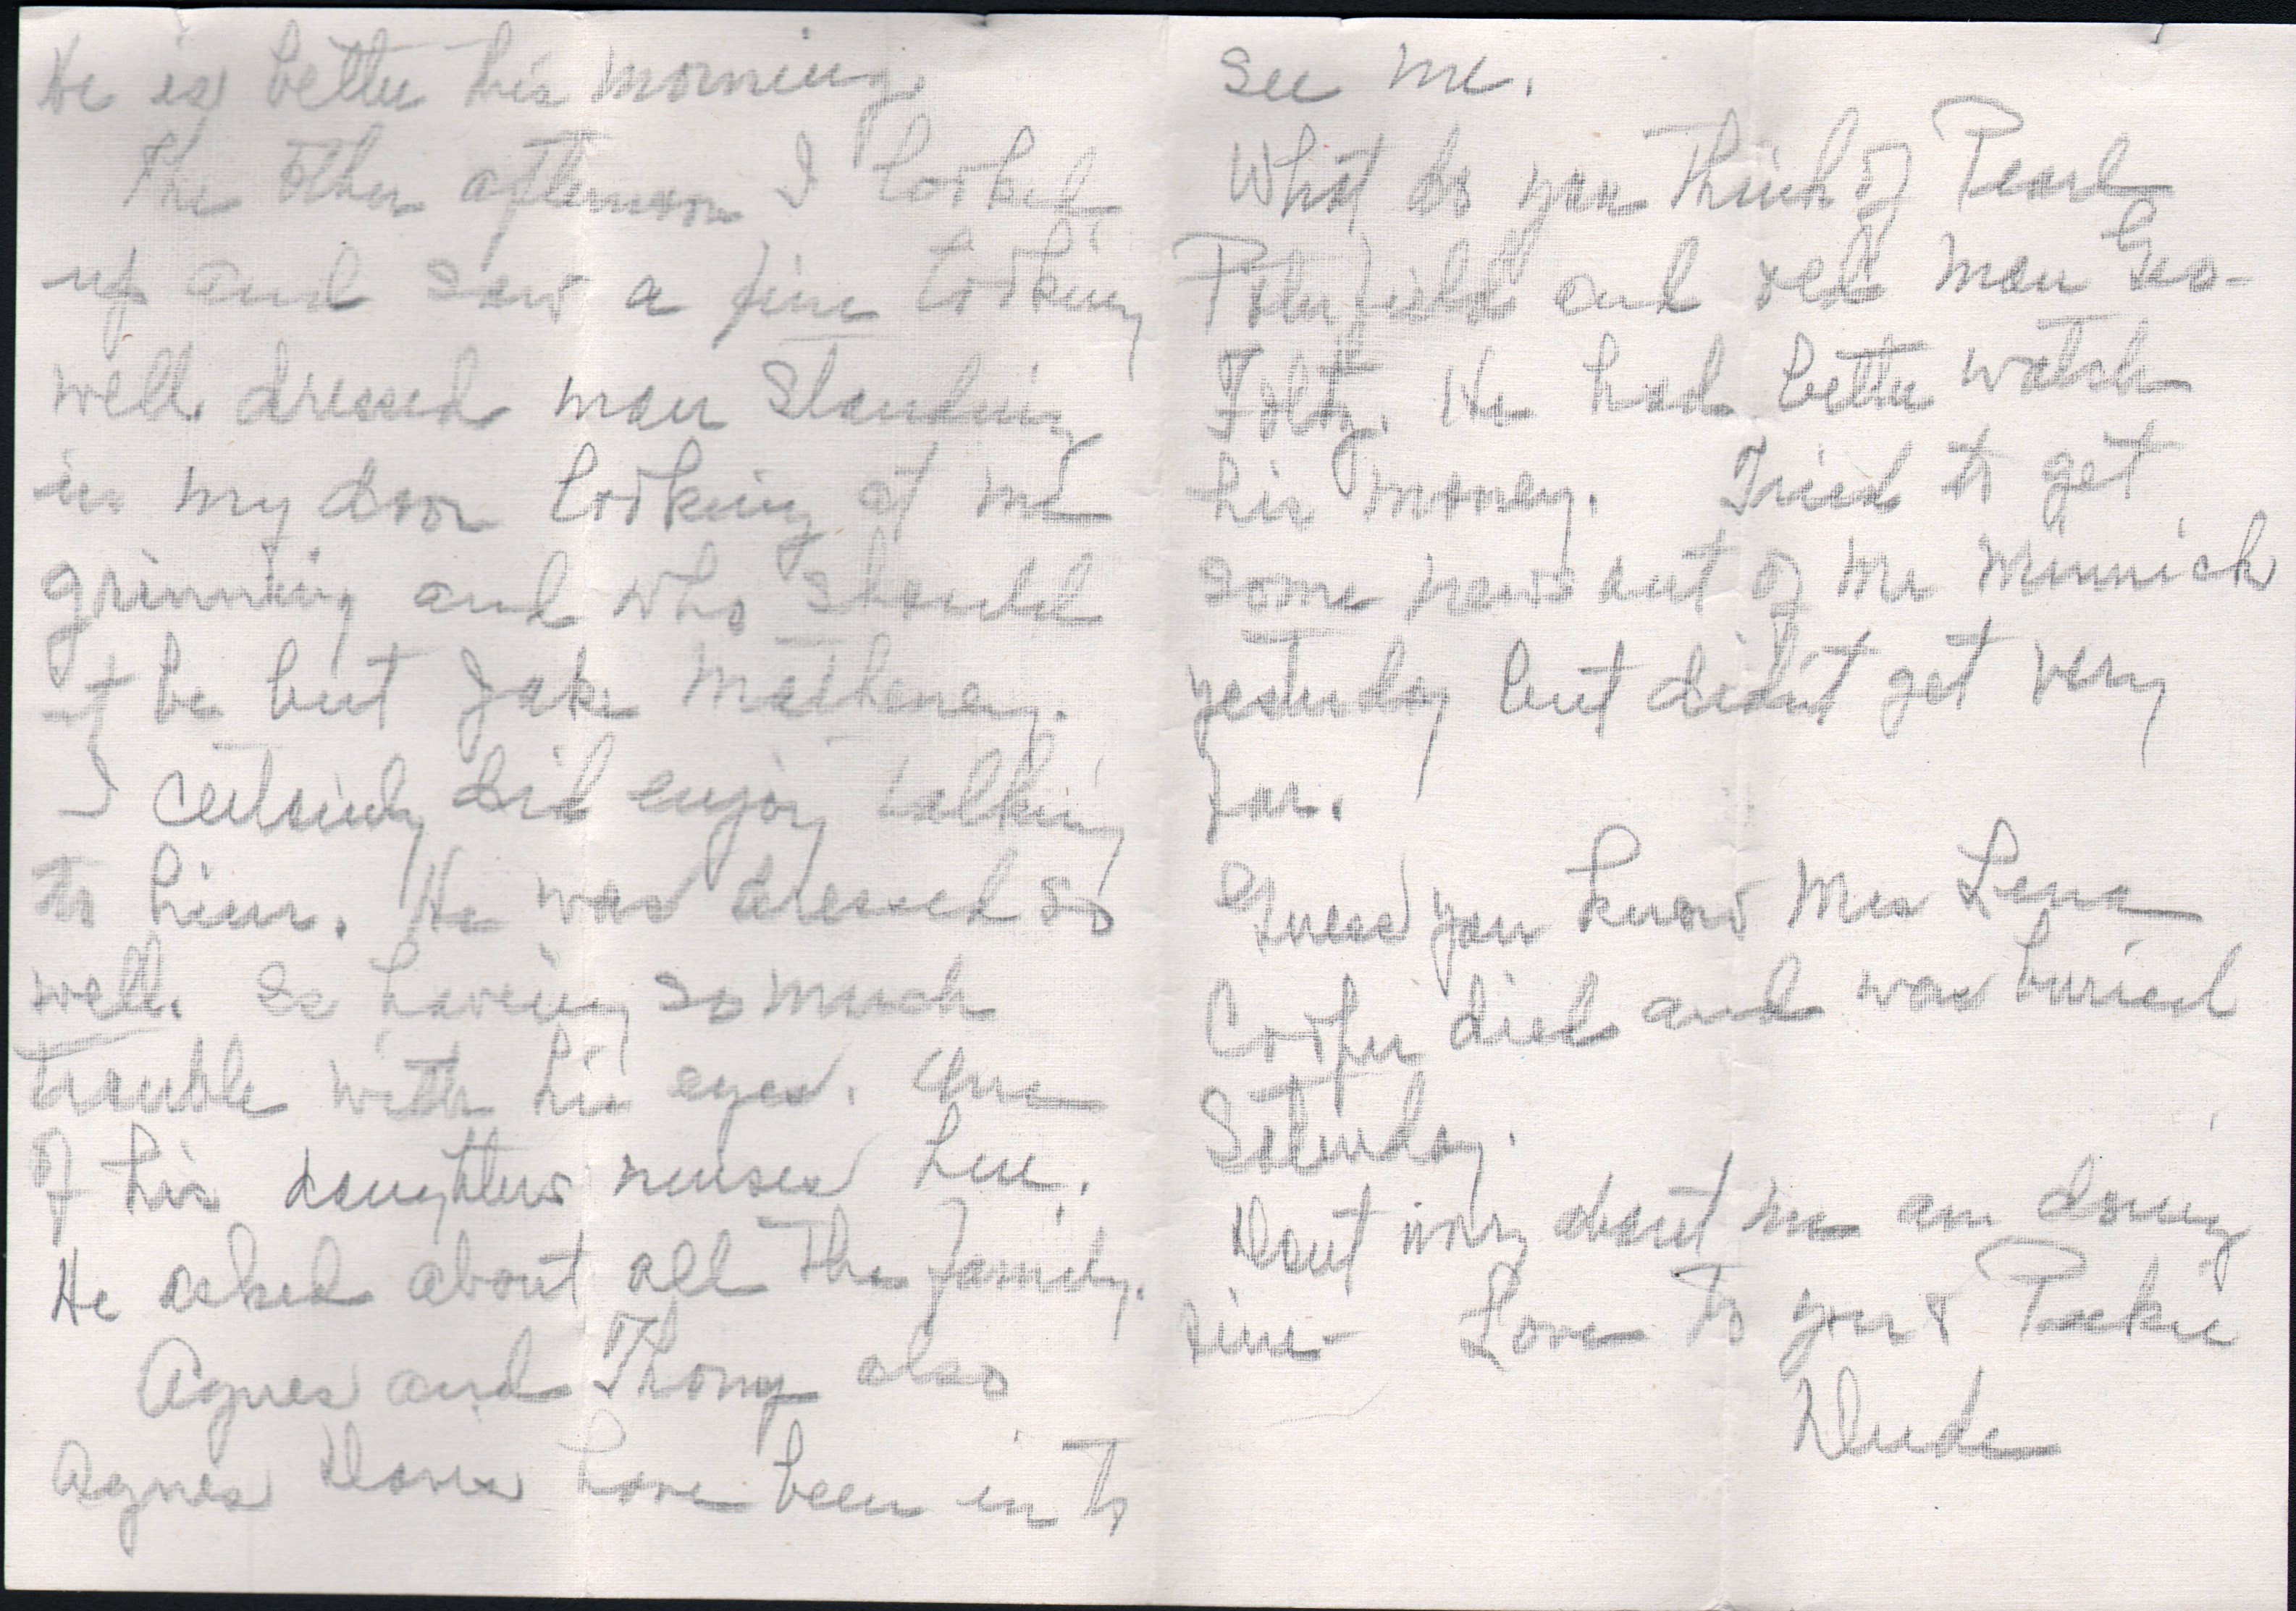 He is better this morning.
The other afternoon I looked
up and saw a fine looking
well dressed man standing
in my door looking at me
grinning and who should
it be but Jake Matheney.
I certainly did enjoy talking
to him. He was dressed so
well. Is having so much
trouble with his eyes. One
of his daughters nurses here.
He asked about all the family.
Agnes and Thomy also
Agnes Davis have been in to
see me.
What do you think of Pearl
Poterfield and old man Geo-
Foltz. He had better watch
his money. Tried to get
some news out of Mr Minnich
yesterday but didn't get very
far.
Guess you know Mrs Lena
Coofer died and was buried
Saturday.
Don't worry about me am doing
fine- Love to you & Pookie
Dude